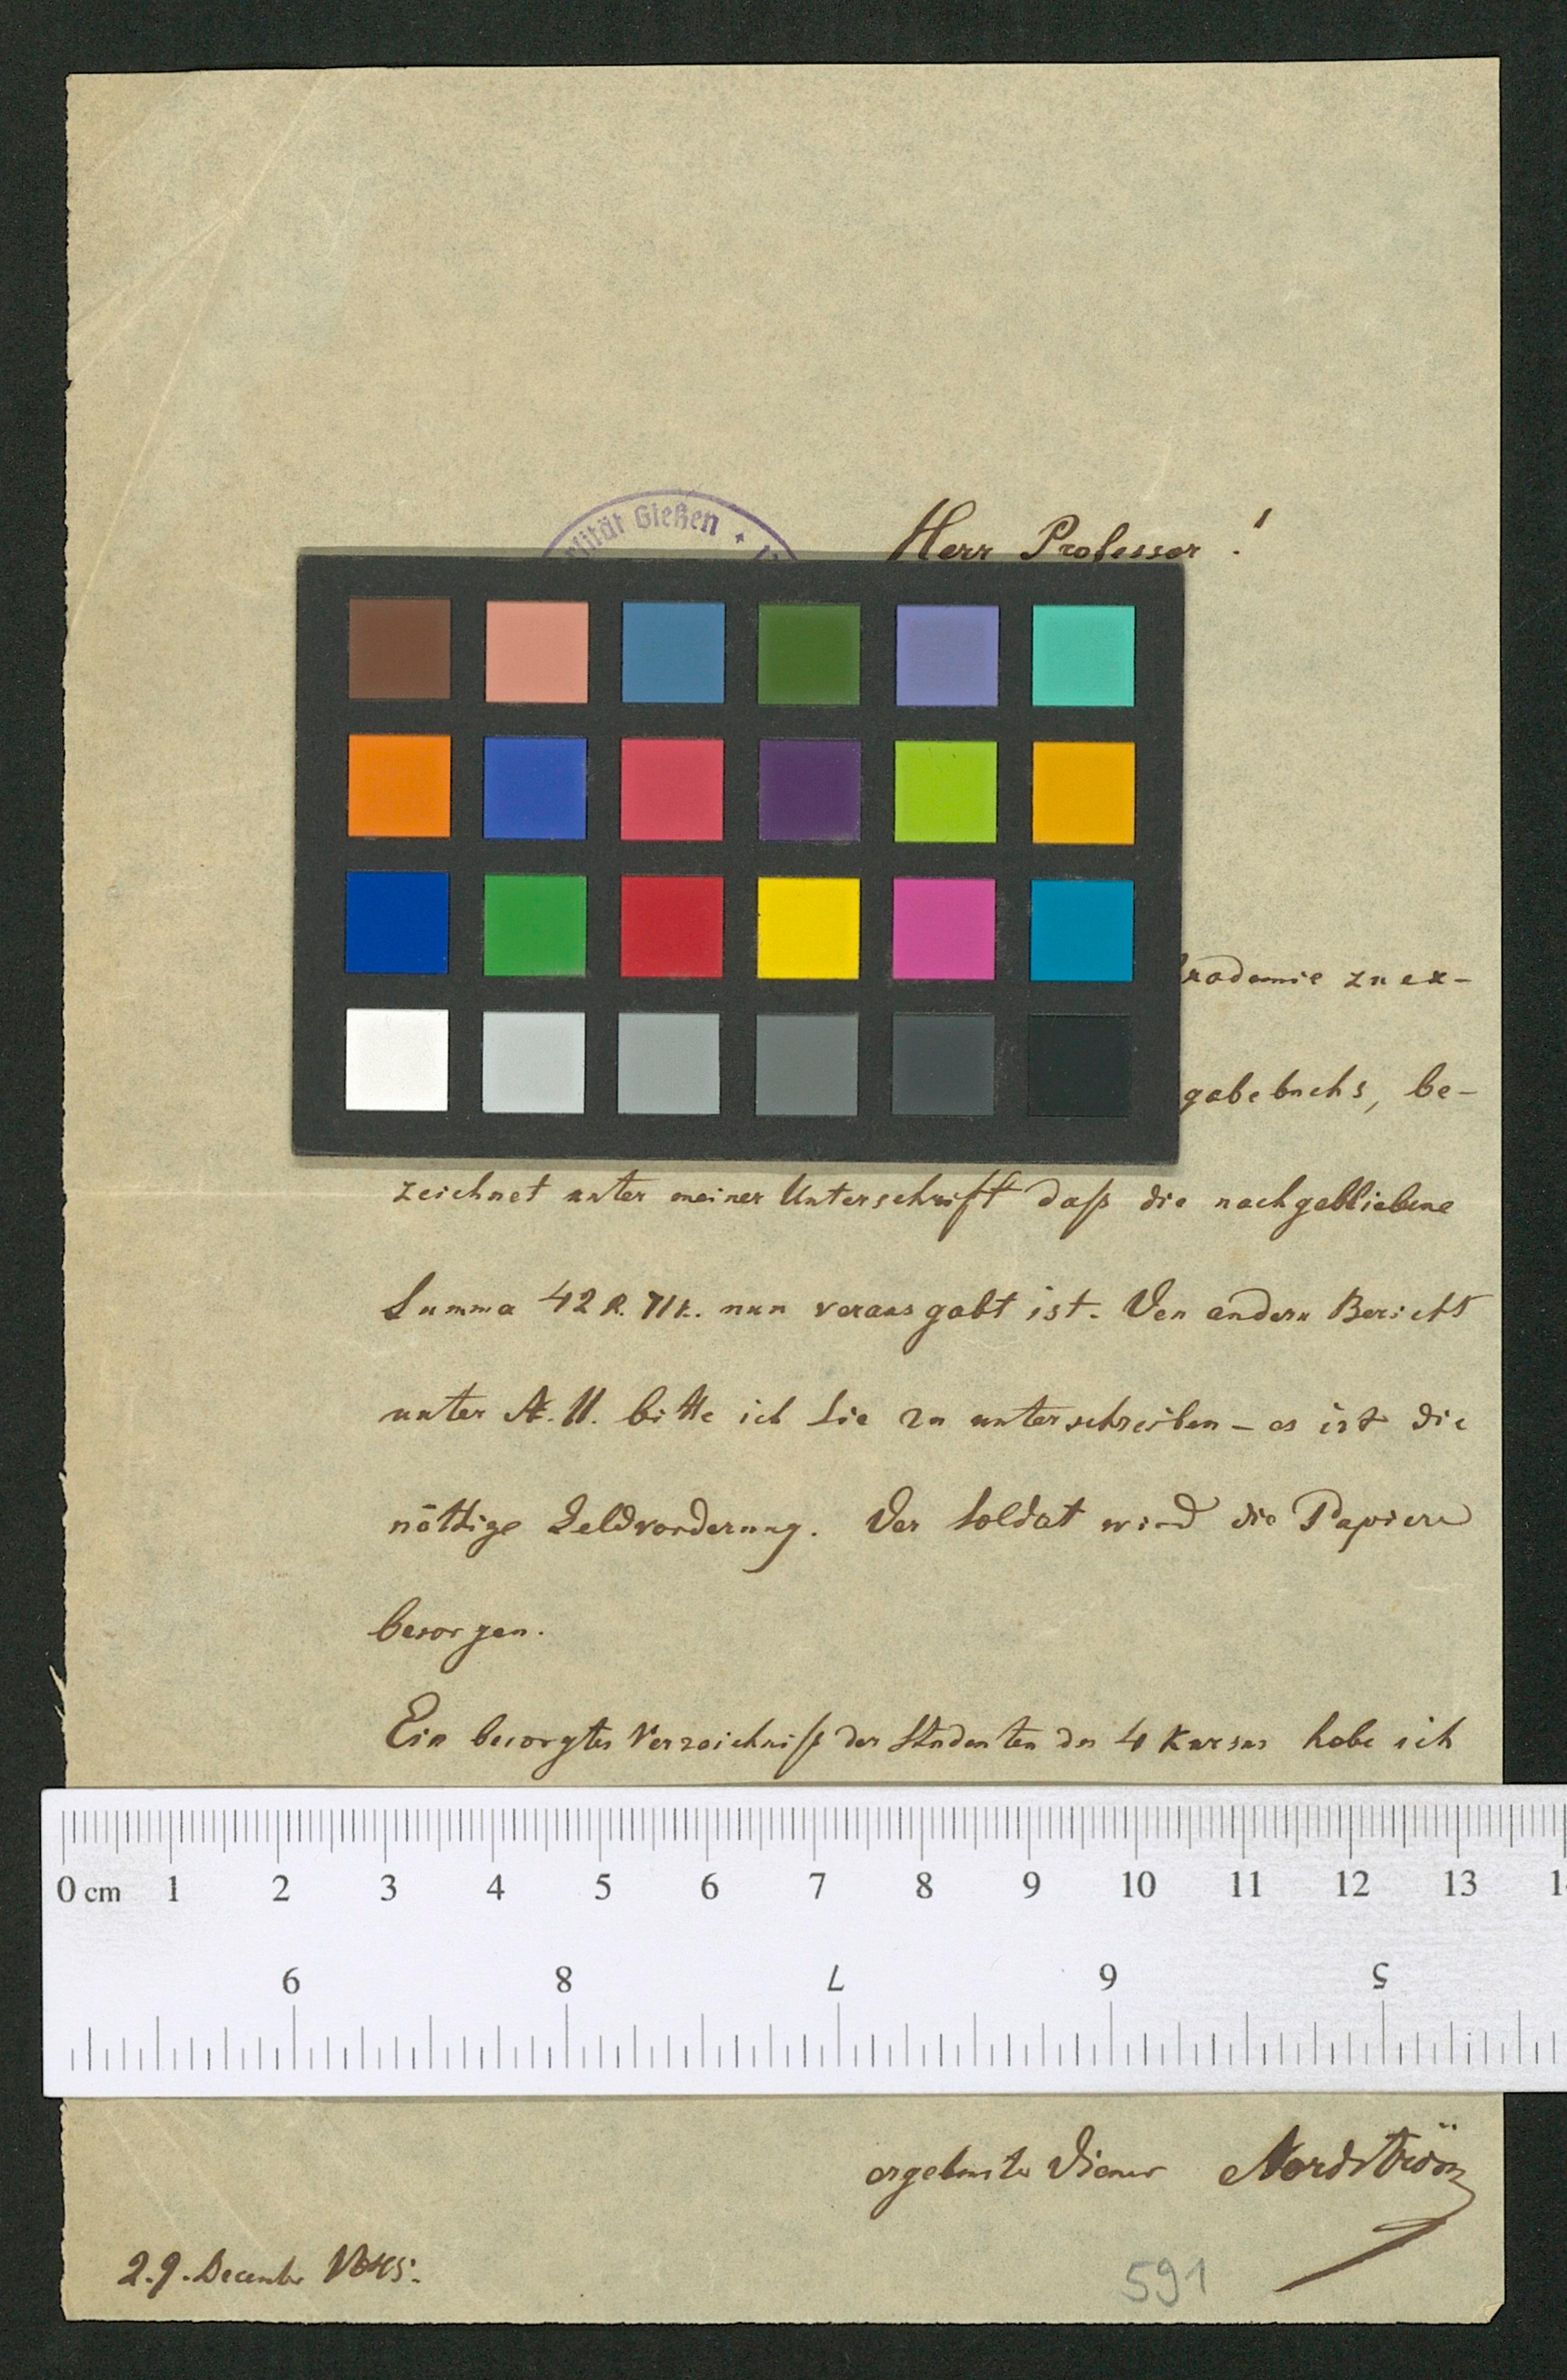 rsität Gießen
Herr Professor!
kademie zu ex-
gabebuchs, be-
zeichnet unter meiner Unterschrift daß die nachgebliebene
Summa 42 R. 71 k. nun verausgabt ist. Den andern Bericht
unter bitte ich Sie zu unterschreiben – es ist die
nöthige Geldvorderung. Der Soldat wird die Papiere
besorgen.
Ein besorgtes Verzeichniß der Studenten des 4 Kursus habe ich
0 cm 1 2 3 4 5 6 7 8 9 10 11 12 13 1
9 8 7 6 5
ergebenster Diener Nordström
29. December 1845.
591